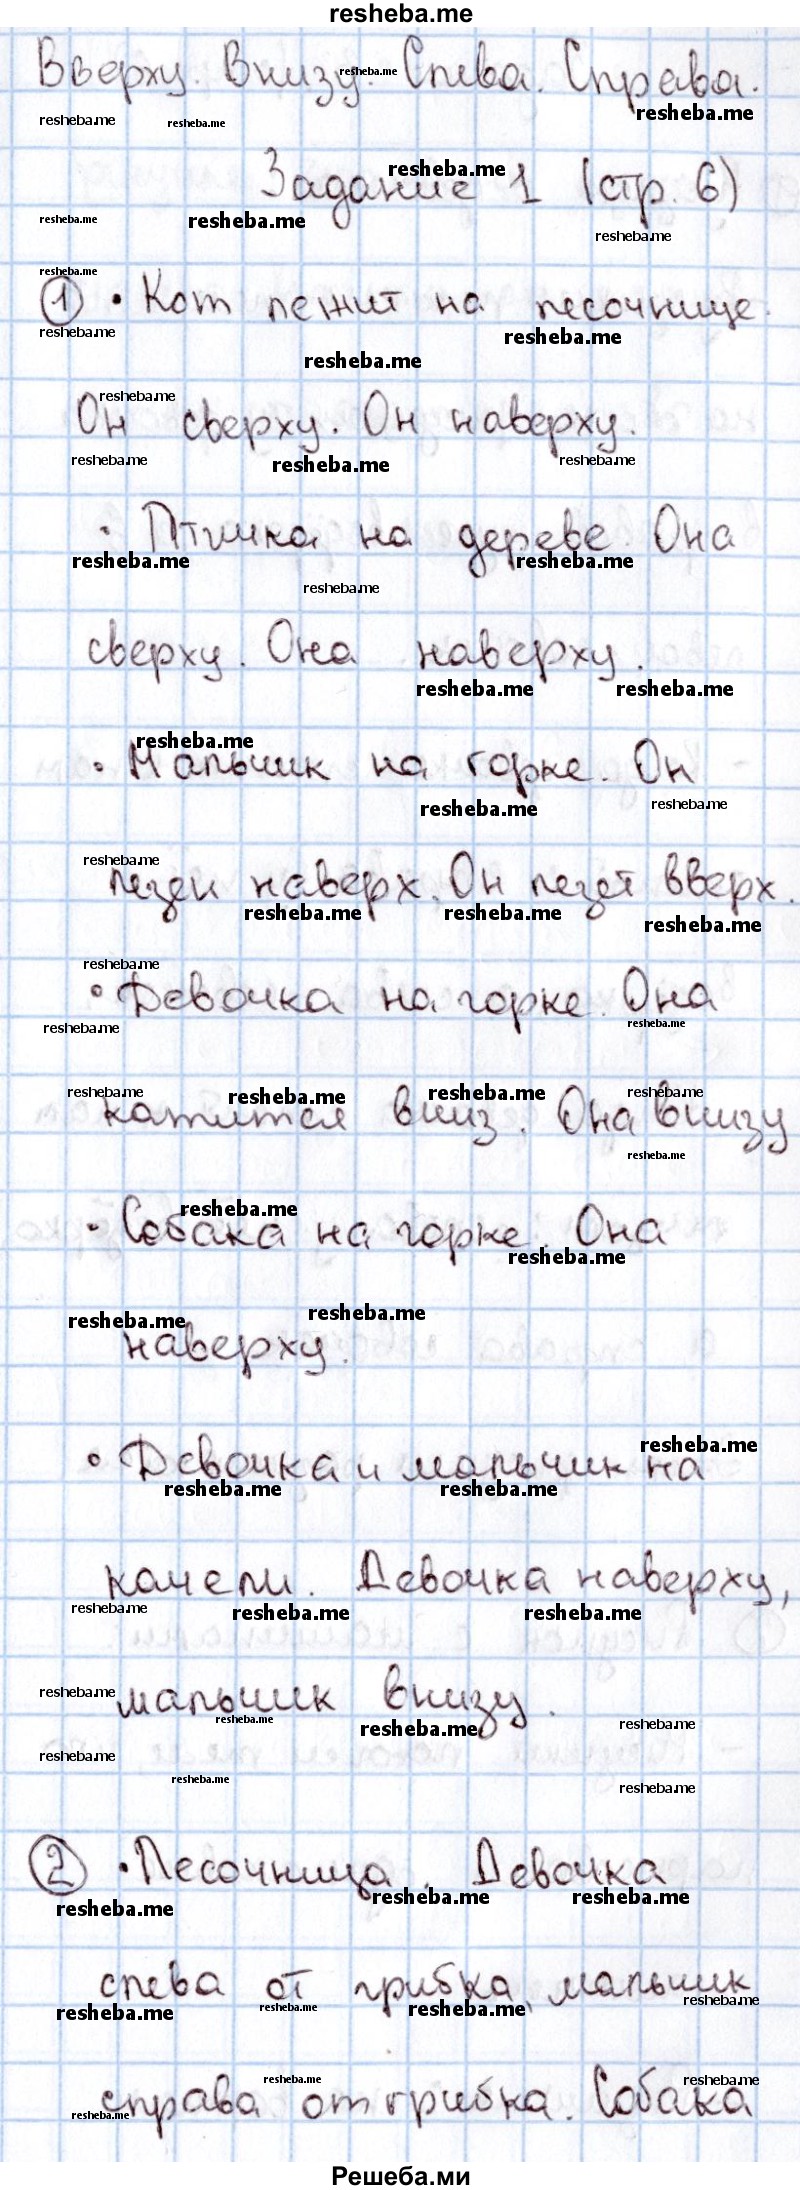 resheba.me
Вверху. Внизу. Слева. Справа.
Задание 1 (стр. 6)
1 • Кот лежит на песочнице.
Он сверху. Он наверху.
• Птичка на дереве. Она
сверху. Она наверху.
• Мальчик на горке. Он
наверх. Он лезет вверх.
• Девочка на горке. Она
катится вниз. Она внизу
• Собака на горке. Она
наверху.
• Девочка и мальчик на
качели. Девочка наверху,
мальчик внизу.
2 • Песочница. Девочка
слева от грибка, мальчик
справа от грибка. Собака
Решеба.ми